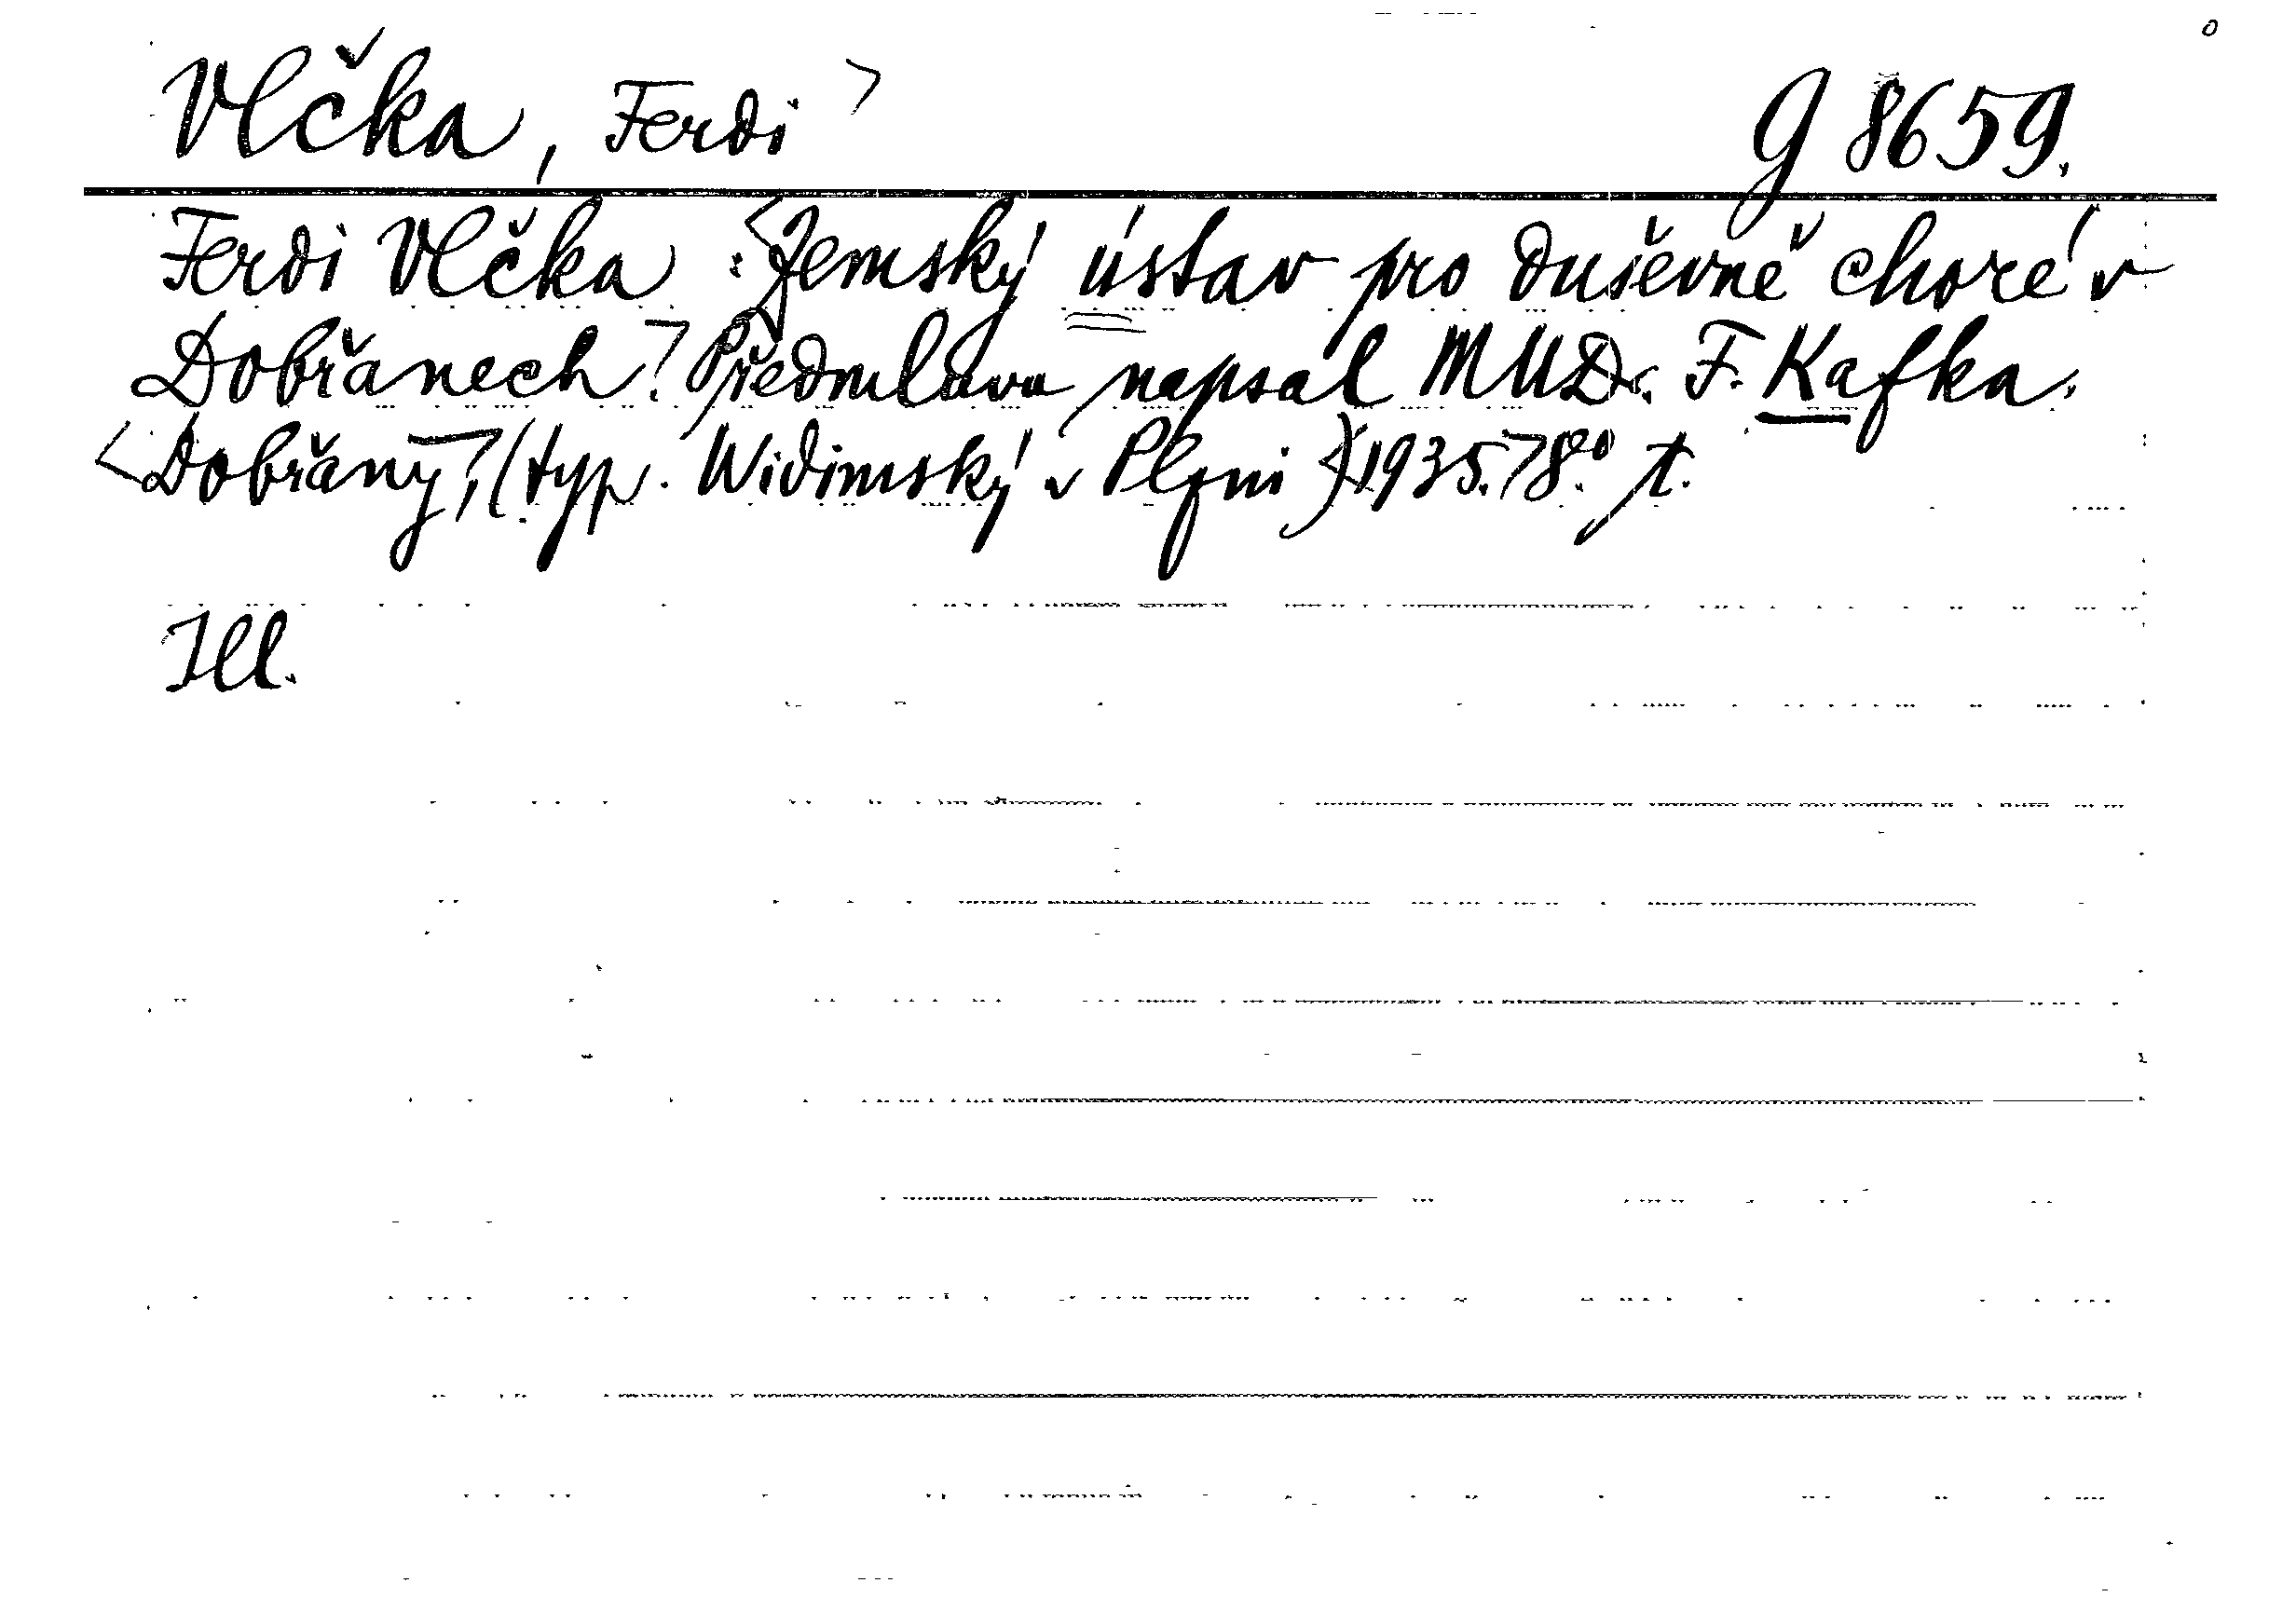 Vlčka, Ferdi
g 8659.
Ferdi Vlčka : Zemský ústav pro duševně choré v
Dobřanech. Předmluvu napsal MUDr. F. Kafka.
Dobřany, (typ. Widimský v Plzni) 1935. 8°. t.
Ill.